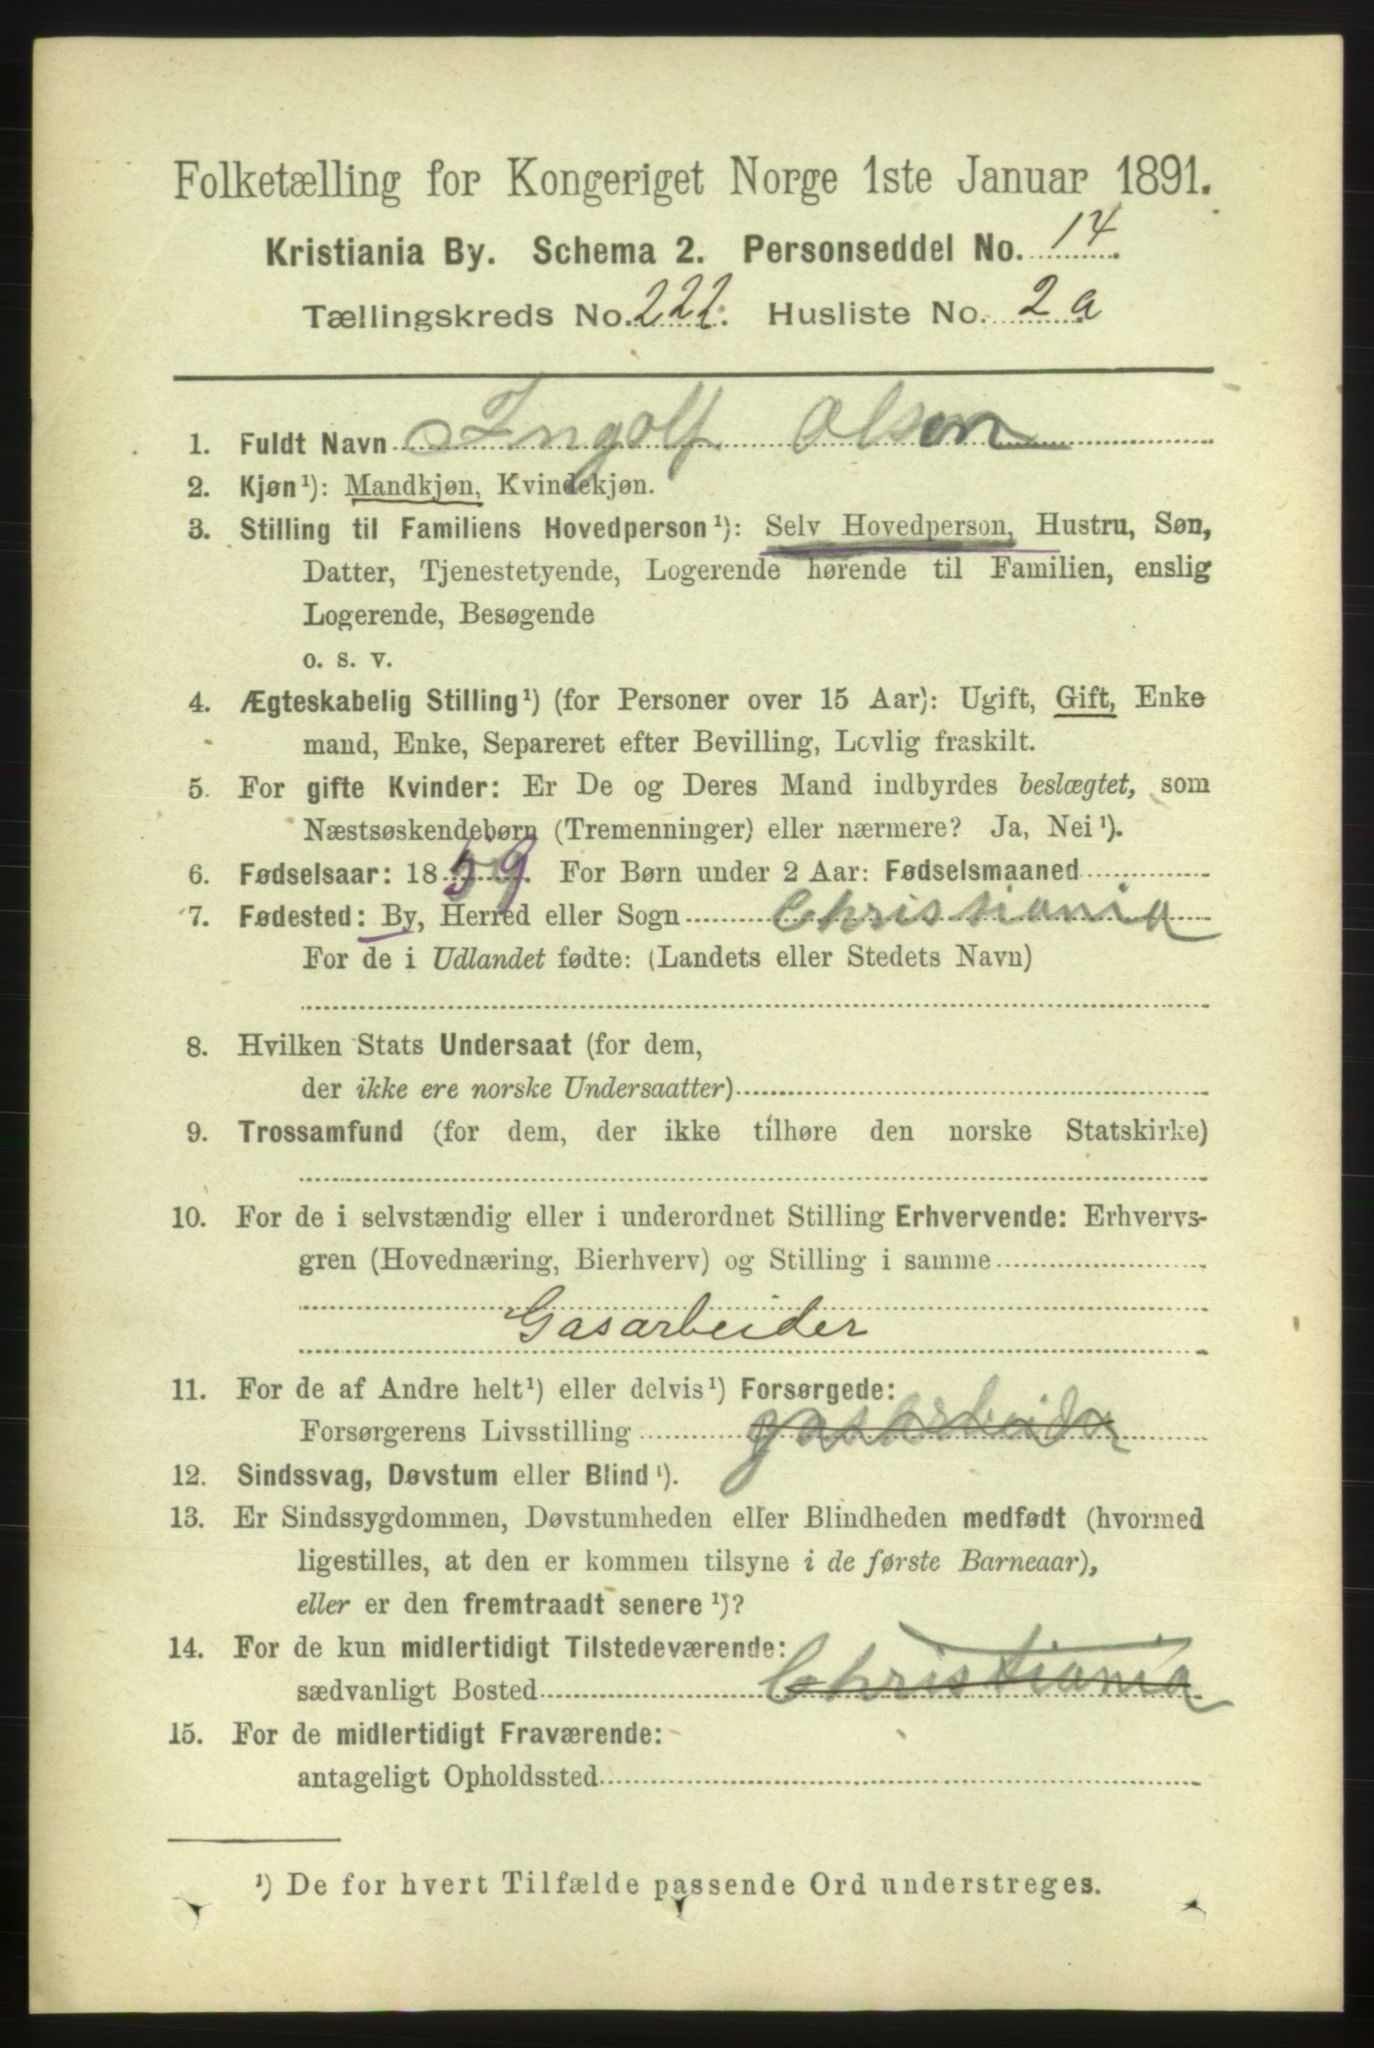 Folketælling for Kongeriget Norge 1ste Januar 1891.
Kristiania By. Schema 2. Personseddel No. 14
Tællingskreds No. 222. Husliste No. 2a
1. Fuldt Navn Ingolf Olsen
2. Kjøn¹): Mandkjøn, Kvindekjøn.
3. Stilling til Familiens Hovedperson¹): Selv Hovedperson, Hustru, Søn,
Datter, Tjenestetyende, Logerende hørende til Familien, enslig
Logerende, Besøgende
o. s. v.
4. Ægteskabelig Stilling¹) (for Personer over 15 Aar): Ugift, Gift, Enke
mand, Enke, Separeret efter Bevilling, Lovlig fraskilt.
5. For gifte Kvinder: Er De og Deres Mand indbyrdes beslægtet, som
Næstsøskendebørn (Tremenninger) eller nærmere? Ja, Nei¹).
6. Fødselsaar: 1859. For Børn under 2 Aar: Fødselsmaaned
7. Fødested: By, Herred eller Sogn Christiania
For de i Udlandet fødte: (Landets eller Stedets Navn)
8. Hvilken Stats Undersaat (for dem,
der ikke ere norske Undersaatter)
9. Trossamfund (for dem, der ikke tilhøre den norske Statskirke)
10. For de i selvstændig eller i underordnet Stilling Erhvervende: Erhvervs-
gren (Hovednæring, Bierhverv) og Stilling i samme
Gasarbeider
11. For de af Andre helt¹) eller delvis¹) Forsørgede:
Forsørgerens Livsstilling gasarbeider
12. Sindssvag, Døvstum eller Blind¹).
13. Er Sindssygdommen, Døvstumheden eller Blindheden medfødt (hvormed
ligestilles, at den er kommen tilsyne i de første Barneaar),
eller er den fremtraadt senere¹)?
14. For de kun midlertidigt Tilstedeværende:
sædvanligt Bosted Christiania
15. For de midlertidigt Fraværende:
antageligt Opholdssted
¹) De for hvert Tilfælde passende Ord understreges.